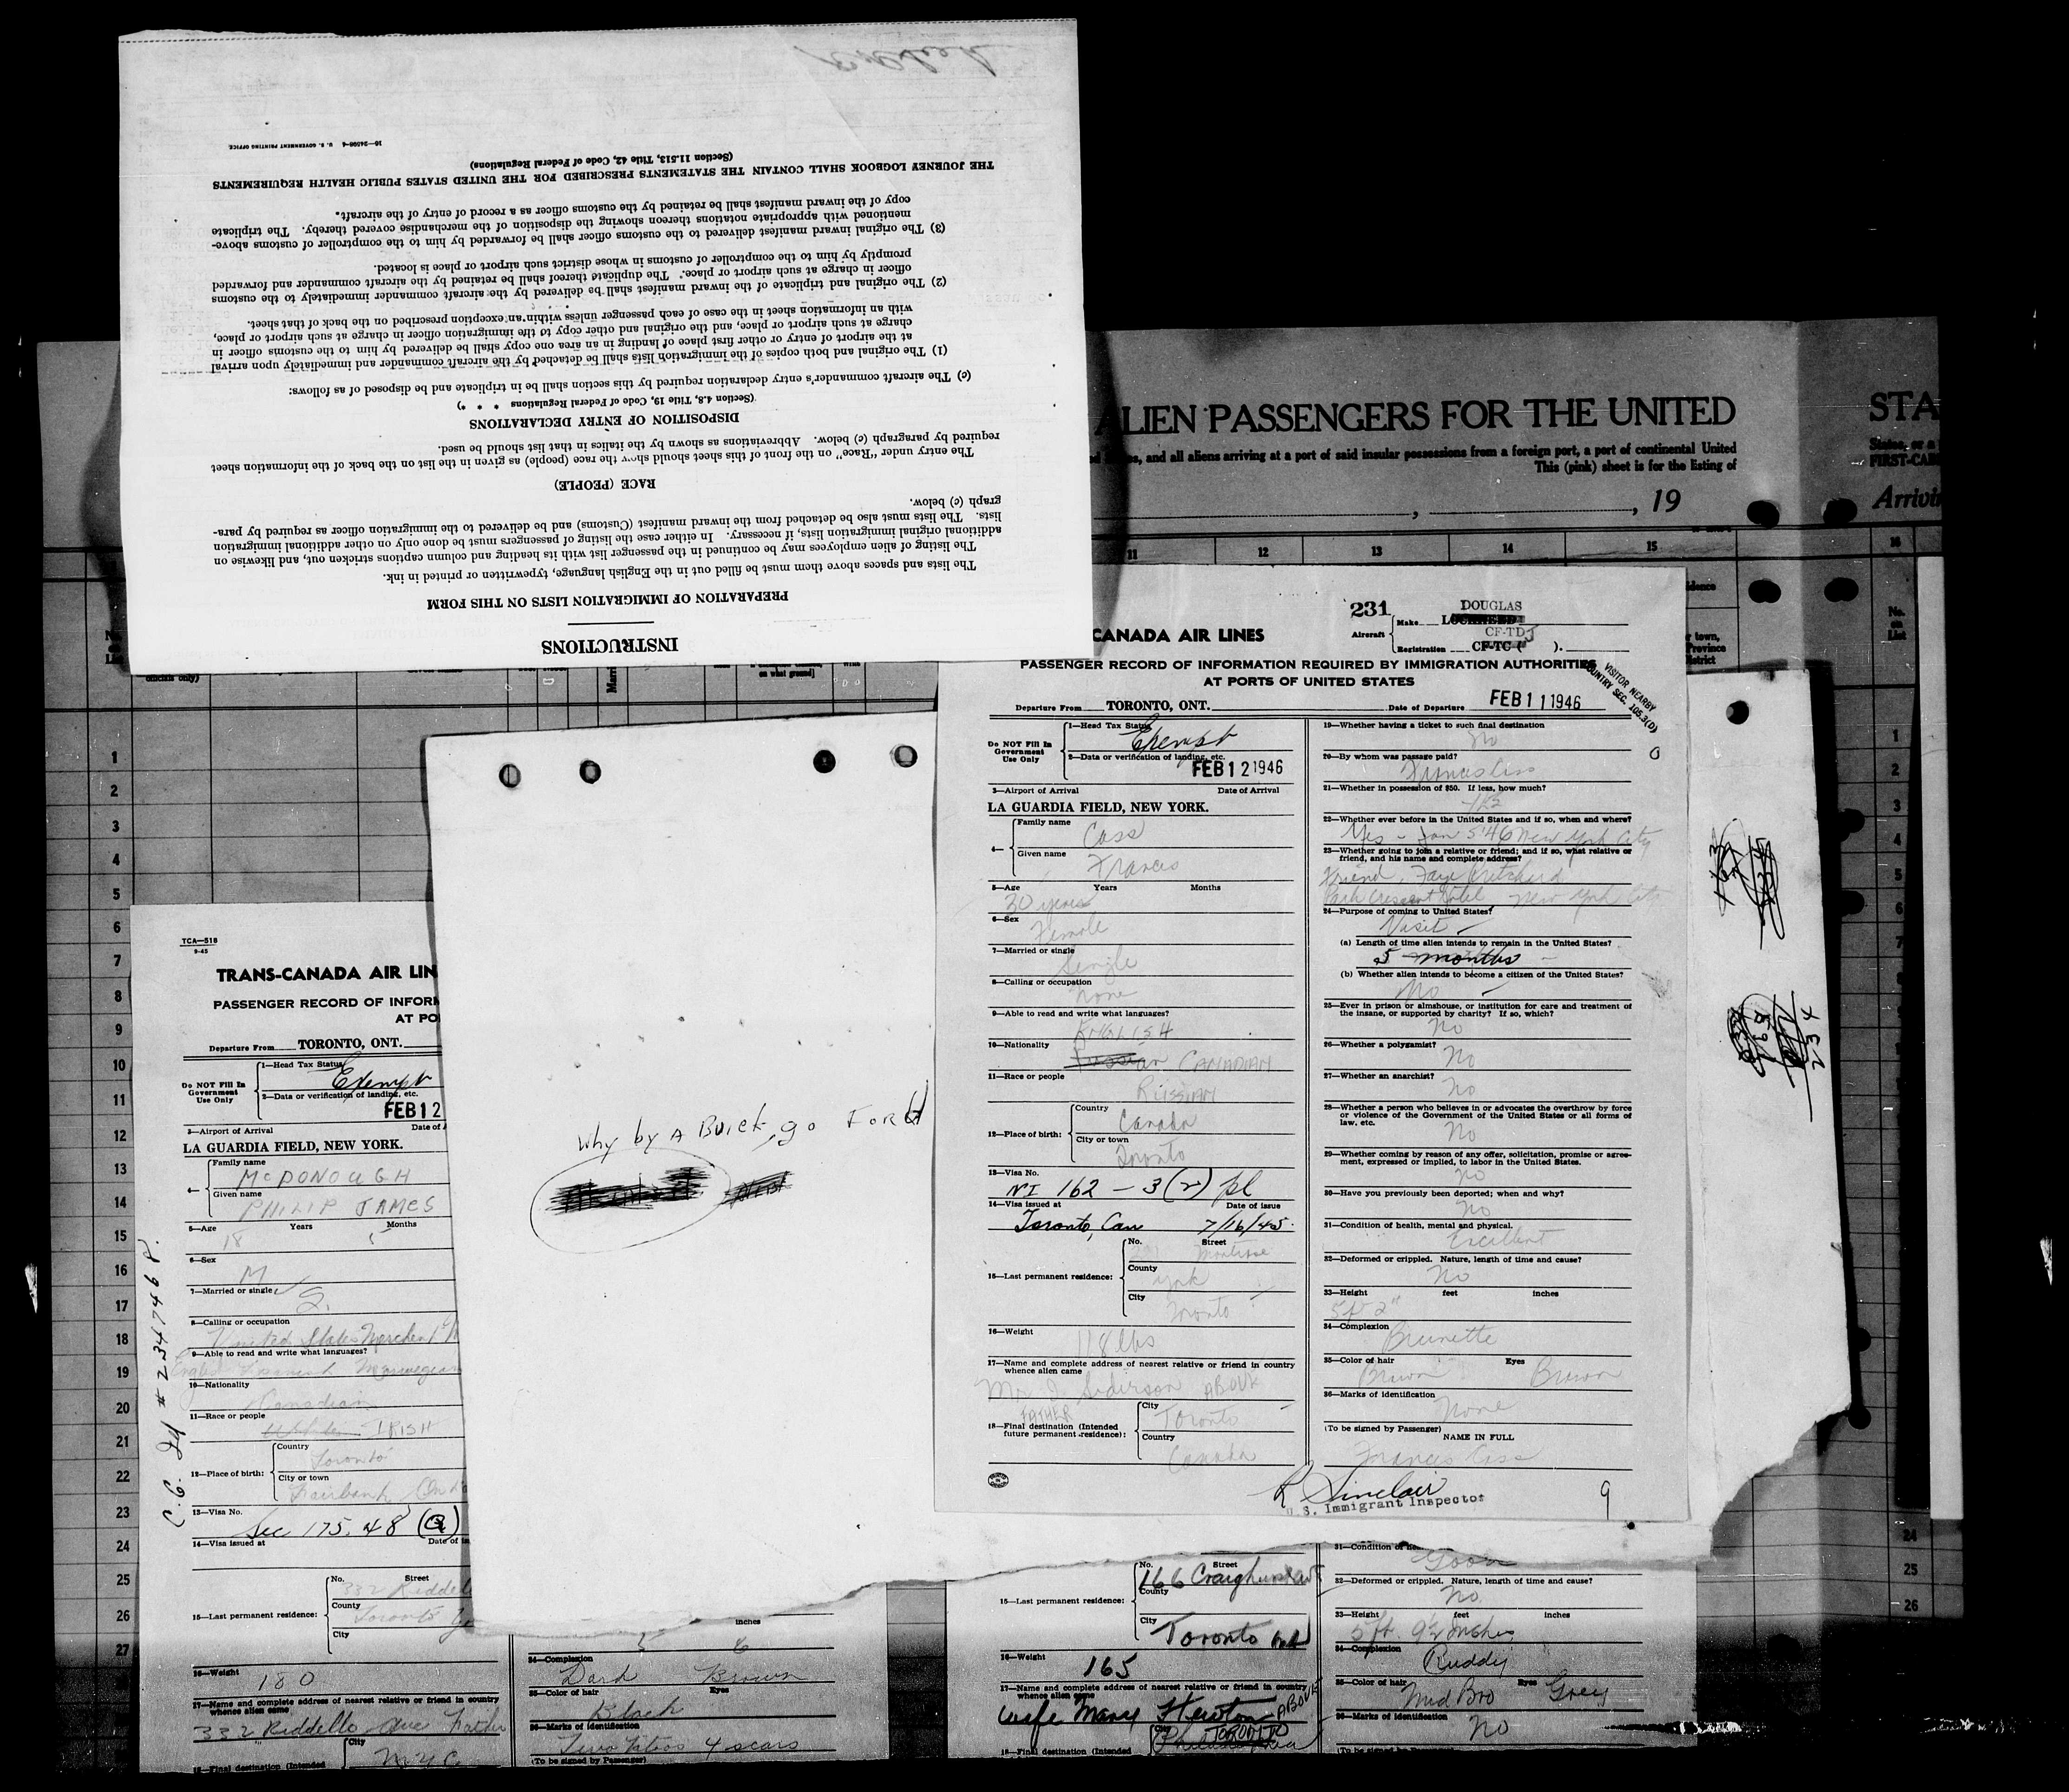 INSTRUCTIONS
PREPARATION OF IMMIGRATION LISTS ON THIS FORM
The lists and spaces above them must be filled out in the English language, typewritten or printed in ink.
The listing of alien employees may be continued in the passenger list with its heading and column captions stricken out, and likewise on
additional original immigration lists, if necessary. In either case the listing of passengers must be done only on other additional immigration
lists. The lists must also be detached from the inward manifest (Customs) and be delivered to the immigration officer as required by para-
graph (c) below.
RACE (PEOPLE)
The entry under "Race" on the front of this sheet should show the race (people) as given in the list on the back of the information sheet
required by paragraph (c) below. Abbreviations as shown by the italics in that list should be used.
DISPOSITION OF ENTRY DECLARATIONS
(Section 4.8, Title 19, Code of Federal Regulations * * *)
(c) The aircraft commander's entry declaration required by this section shall be in triplicate and be disposed of as follows:
(1) The original and both copies of the immigration lists shall be detached by the aircraft commander and immediately upon arrival
at the airport of entry or other first place of landing in an area one copy shall be delivered by him to the customs officer in
charge at such airport or place, and the original and other copy to the immigration officer in charge at such airport or place,
with an information sheet in the case of each passenger unless within an exception prescribed on the back of that sheet.
(2) The original and triplicate of the inward manifest shall be delivered by the aircraft commander immediately to the customs
officer in charge at such airport or place. The duplicate thereof shall be retained by the aircraft commander and forwarded
promptly by him to the comptroller of customs in whose district such airport or place is located.
(3) The original inward manifest delivered to the customs officer shall be forwarded by him to the comptroller of customs above-
mentioned with appropriate notations thereon showing the disposition of the merchandise covered thereby. The triplicate
copy of the inward manifest shall be retained by the customs officer as a record of entry of the aircraft.
THE JOURNEY LOGBOOK SHALL CONTAIN THE STATEMENTS PRESCRIBED FOR THE UNITED STATES PUBLIC HEALTH REQUIREMENTS
(Section 11.513, Title 42, Code of Federal Regulations)
16—24506-4 U. S. GOVERNMENT PRINTING OFFICE
ALIEN PASSENGERS FOR THE UNITED
STA
and all aliens arriving at a port of said insular possessions from a foreign port, a port of continental United
States, or a
This (pink) sheet is for the listing of
FIRST-CAB
, 19
Arrivi
11 12 13 14 15 16
231
DOUGLAS
CANADA AIR LINES
Aircraft
Make
Registration CF-TC ( ).
CF-TDJ
PASSENGER RECORD OF INFORMATION REQUIRED BY IMMIGRATION AUTHORITIES
AT PORTS OF UNITED STATES
VISITOR NEARBY
COUNTRY SEC. 105.3(D)
Departure From TORONTO, ONT. Date of Departure FEB 11 1946
Do NOT Fill In
Government
Use Only
1—Head Tax Status
Exempt
2—Data or verification of landing, etc.
FEB 12 1946
3—Airport of Arrival Date of Arrival
LA GUARDIA FIELD, NEW YORK.
4— Family name
Cass
Given name
Frances
5—Age Years Months
30 years
6—Sex
Female
7—Married or single
Single
8—Calling or occupation
None
9—Able to read and write what languages?
ENGLISH
10—Nationality
CANADIAN
11—Race or people
RUSSIAN
12—Place of birth:
Country
Canada
City or town
Toronto
13—Visa No.
NI 162 - 3(2) pl
14—Visa issued at Date of issue
Toronto, Can 7/16/45.
15—Last permanent residence:
No. Street
Montrose
County
York
City
Toronto
16—Weight
118 lbs
17—Name and complete address of nearest relative or friend in country
whence alien came
Mr. J. ABOVE
FATHER
18—Final destination (Intended
future permanent residence):
City
Toronto
Country
Canada
19—Whether having a ticket to such final destination
No
20—By whom was passage paid?
21—Whether in possession of $50. If less, how much?
22—Whether ever before in the United States and if so, when and where?
Yes - Jan 5'46 New York City
23—Whether going to join a relative or friend; and if so, what relative or
friend, and his name and complete address?
Friend, Faye Pritchard
Park Crescent Hotel New York City
24—Purpose of coming to United States?
Visit
(a) Length of time alien intends to remain in the United States?
5 months
(b) Whether alien intends to become a citizen of the United States?
No
25—Ever in prison or almshouse, or institution for care and treatment of
the insane, or supported by charity? If so, which?
No
26—Whether a polygamist?
No
27—Whether an anarchist?
No
28—Whether a person who believes in or advocates the overthrow by force
or violence of the Government of the United States or all forms of
law, etc.
No
29—Whether coming by reason of any offer, solicitation, promise or agree-
ment, expressed or implied, to labor in the United States.
No
30—Have you previously been deported; when and why?
No
31—Condition of health, mental and physical.
Excellent
32—Deformed or crippled. Nature, length of time and cause?
No
33—Height feet inches
5 ft 2"
34—Complexion
Brunette
35—Color of hair Eyes
Brown Brown
36—Marks of identification
None
(To be signed by Passenger)
NAME IN FULL
Frances Cass
R Sinclair
U.S. Immigrant Inspector
9
234
Why by A Buick, go FORd
TCA—518
9-45
TRANS-CANADA AIR LIN
PASSENGER RECORD OF INFORM
AT PO
Departure From TORONTO, ONT.
Do NOT Fill In
Government
Use Only
1—Head Tax Status
Exempt
2—Data or verification of landing, etc.
FEB 12
3—Airport of Arrival Date of A
LA GUARDIA FIELD, NEW YORK.
4— Family name
McDONOUGH
Given name
PHILIP JAMES
5—Age Years Months
18 5
6—Sex
M
7—Married or single
S.
8—Calling or occupation
United States Merchant
9—Able to read and write what languages?
English Spanish Norwegian
10—Nationality
Canadian
11—Race or people
IRISH
12—Place of birth:
Country
Toronto
City or town
Fairbank Ont
13—Visa No.
Sec 175.48 (Q)
14—Visa issued at Date of is
15—Last permanent residence:
No. Street
332 Riddell
County
Toronto
City
16—Weight
180
17—Name and complete address of nearest relative or friend in country
whence alien came
332 Riddello Ave Father
18—Final destination (Intended
City
N.Y.C.
C.G. Id # 2347468.
inches
5 6
34—Complexion
Dark Brown
35—Color of hair Eyes
Black
36—Marks of identification
Two Tatoos 4 scars
(To be signed by Passenger)
15—Last permanent residence:
No. Street
166 Craighurst Ave
County
City
Toronto Ont
16—Weight
165
17—Name and complete address of nearest relative or friend in country
whence alien came
wife Mary ABOVE
18—Final destination (Intended
City
TORONTO
31—Condition of
Good
32—Deformed or crippled. Nature, length of time and cause?
No
33—Height feet inches
5 ft. 9½ inches
34—Complexion
Ruddy
35—Color of hair Eyes
Mid Bro Grey
36—Marks of identification
No
(To be signed by Passenger)
1
2
3
4
5
6
7
8
9
10
11
12
13
14
15
16
17
18
19
20
21
22
23
24
25
26
27